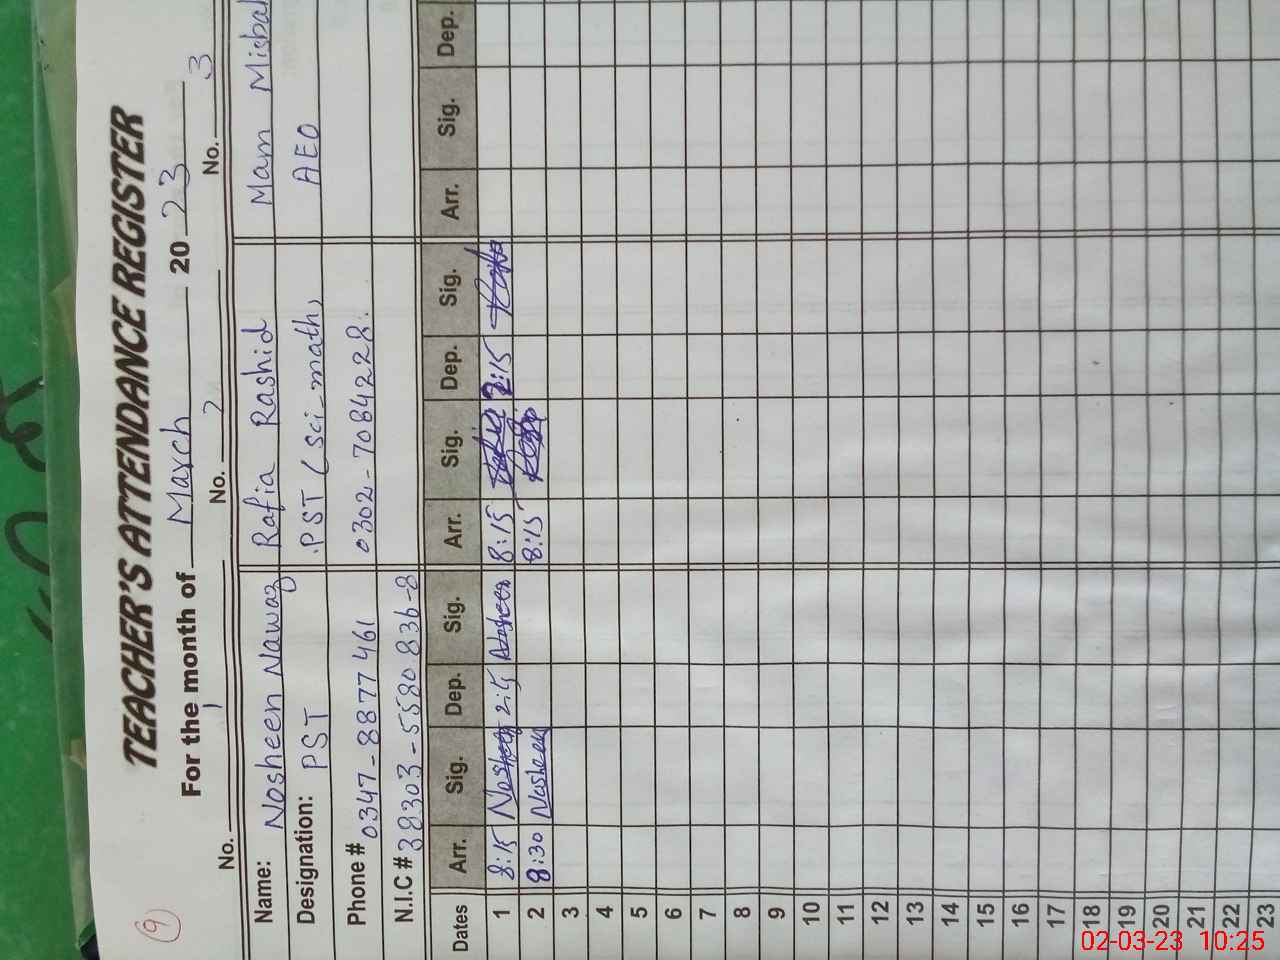 9
TEACHER'S ATTENDANCE REGISTER
For the month of March 20 23
No. 1 No. 2 No. 3
Name: Nosheen Nawaz Rafia Rashid Mam Misbah
Designation: PST PST (sci-math) AEO
Phone # 0347-8877461 0302-7084228
N.I.C # 38303-5580836-8
Dates Arr. Sig. Dep. Sig. Arr. Sig. Dep. Sig. Arr. Sig. Dep.
1 8:15 Nosheen 2:15 Nosheen 8:15 Rafia 2:15
2 8:30 Nosheen 8:15
3
4
5
6
7
8
9
10
11
12
13
14
15
16
17
18
19
20
21
22
23
02-03-23 10:25